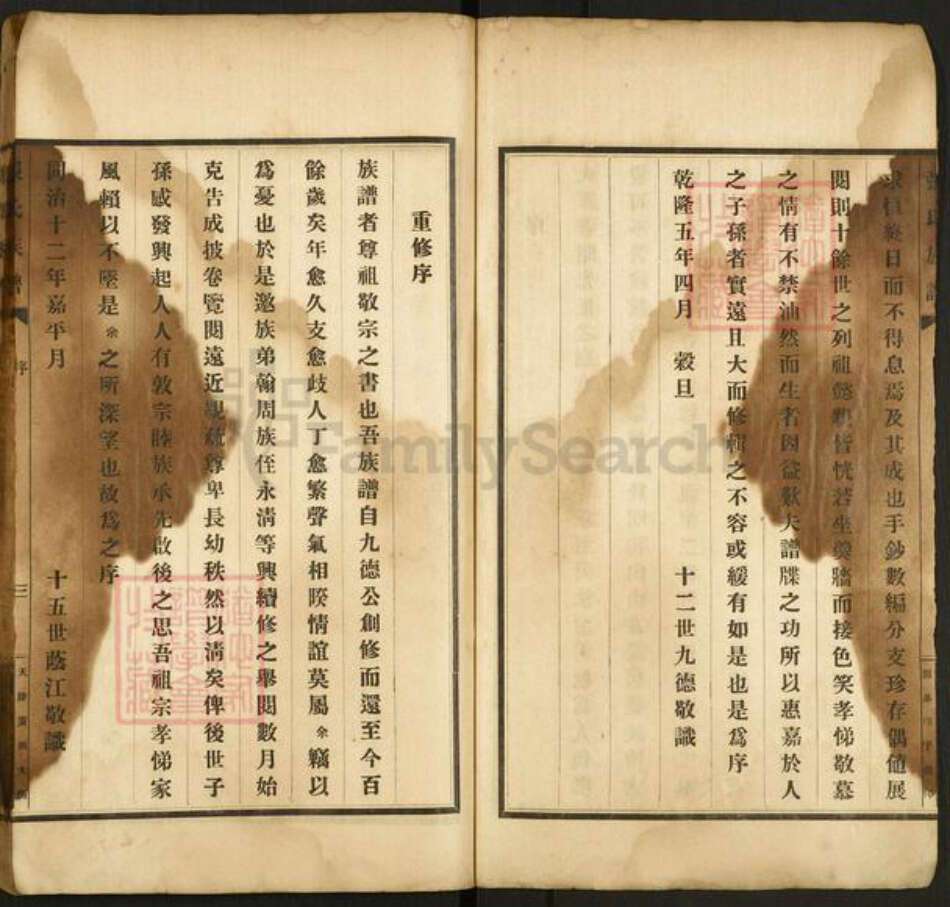 求恒終日而不得息焉及其成也手鈔數編分支珍存偶值展
閱則十餘世之列祖懿親皆恍若坐羹牆而接色笑孝悌敬慕
之情有不禁油然而生者因益歎夫譜牒之功所以惠嘉於人
之子孫者實遠且大而修輯之不容或緩有如是也是爲序
乾隆五年四月 穀旦 十二世九德敬識
重修序
族譜者尊祖敬宗之書也吾族譜自九德公創修而還至今百
餘歲矣年愈久支愈歧人丁愈繁聲氣相暌情誼莫屬余竊以
爲憂也於是邀族弟翰周族侄永清等興續修之舉閱數月始
克告成披卷覽閱遠近親疏尊卑長幼秩然以清矣俾後世子
孫感發興起人人有敦宗睦族承先啟後之思吾祖宗孝悌家
風賴以不墜是余之所深望也故爲之序
同治十二年嘉平月 十五世蔭江敬識
氏族譜 序 三
FamilySearch